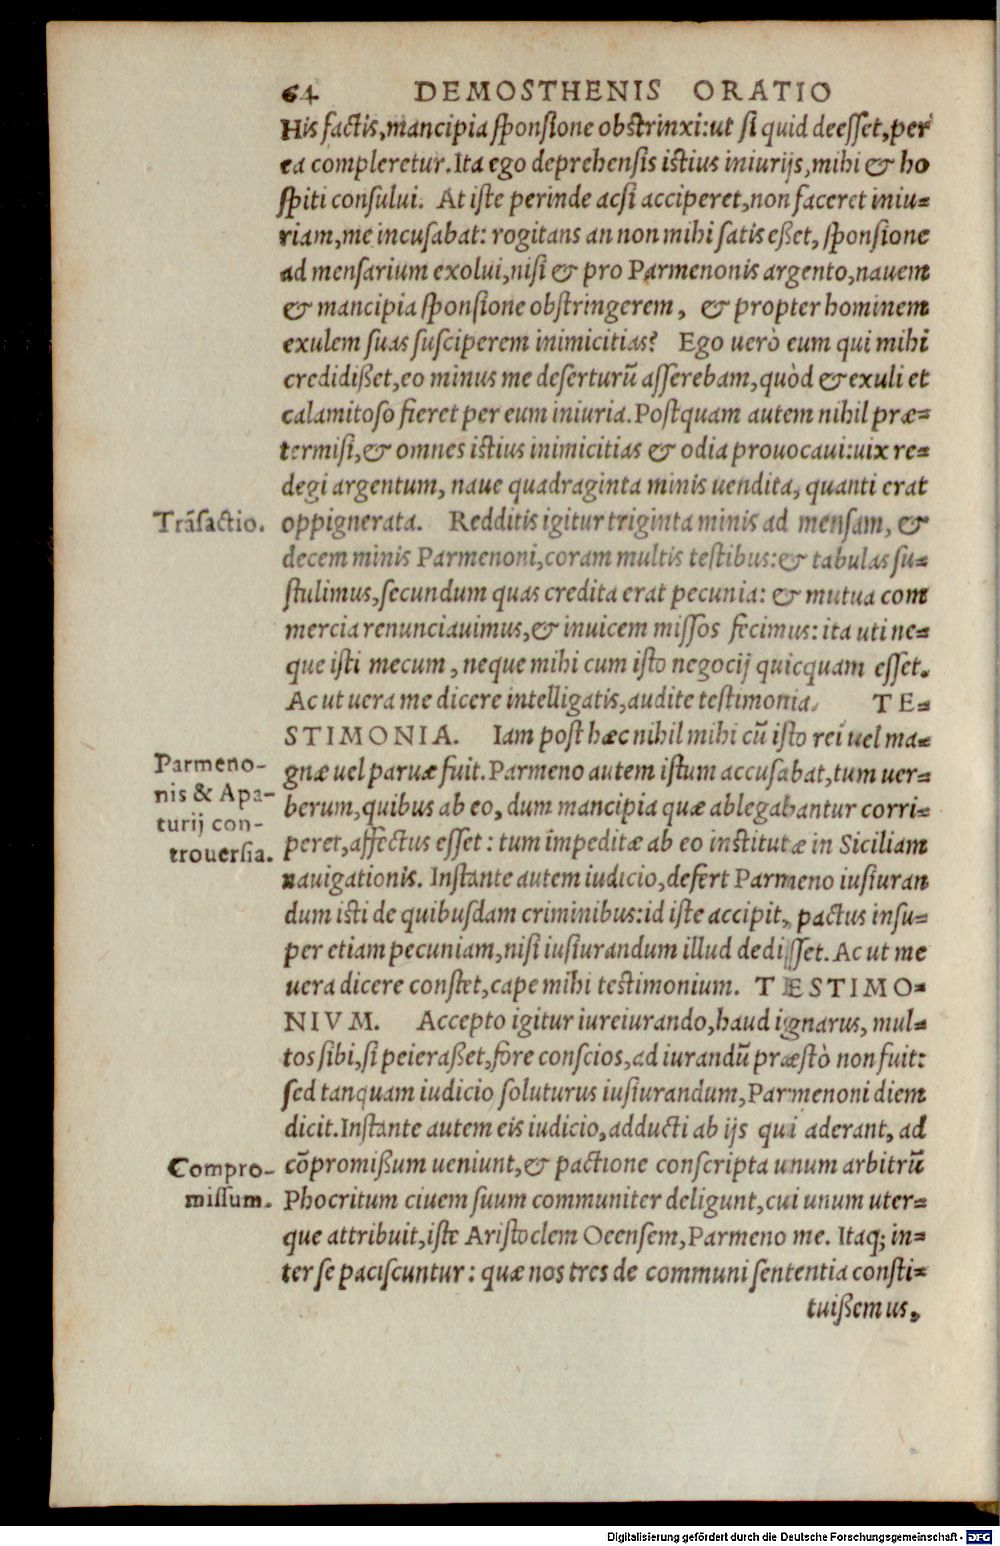 64 DEMOSTHENIS ORATIO
His factis, mancipia sponsione obstrinxi: ut si quid deesset, per
ea compleretur. Ita ego deprehensis istius iniurijs, mihi & ho
spiti consului. At iste perinde acsi acciperet, non faceret iniu=
riam, me incusabat: rogitans an non mihi satis eßet, sponsione
ad mensarium exolui, nisi & pro Parmenonis argento, nauem
& mancipia sponsione obstringerem, & propter hominem
exulem suas susciperem inimicitias? Ego uerò eum qui mihi
credidißet, eo minus me deserturũ asserebam, quòd & exuli et
calamitoso fieret per eum iniuria. Postquam autem nihil præ=
termisi, & omnes istius inimicitias & odia prouocaui: uix re=
degi argentum, naue quadraginta minis uendita, quanti erat
Trãsactio. oppignerata. Redditis igitur triginta minis ad mensam, &
decem minis Parmenoni, coram multis testibus: & tabulas su=
stulimus, secundum quas credita erat pecunia: & mutua com
mercia renunciauimus, & inuicem missos fecimus: ita uti ne=
que isti mecum, neque mihi cum isto negocij quicquam esset.
Ac ut uera me dicere intelligatis, audite testimonia. TE=
STIMONIA. Iam post hæc nihil mihi cũ isto rei uel ma=
Parmeno-
nis & Apa-
turij con-
trouersia.
gnæ uel paruæ fuit. Parmeno autem istum accusabat, tum uer=
berum, quibus ab eo, dum mancipia quæ ablegabantur corri=
peret, affectus esset: tum impeditæ ab eo institutæ in Siciliam
nauigationis. Instante autem iudicio, defert Parmeno iusiuran
dum isti de quibusdam criminibus: id iste accipit, pactus insu=
per etiam pecuniam, nisi iusiurandum illud dedisset. Ac ut me
uera dicere constet, cape mihi testimonium. TESTIMO=
NIVM. Accepto igitur iureiurando, haud ignarus, mul=
tos sibi, si peieraßet, fore conscios, ad iurandũ præstò non fuit:
sed tanquam iudicio soluturus iusiurandum, Parmenoni diem
dicit. Instante autem eis iudicio, adducti ab ijs qui aderant, ad
Compro-
missum.
cõpromißum ueniunt, & pactione conscripta unum arbitrũ
Phocritum ciuem suum communiter deligunt, cui unum uter=
que attribuit, iste Aristoclem Oeensem, Parmeno me. Itaq; in=
ter se paciscuntur: quæ nos tres de communi sententia consti=
tuißemus,
Digitalisierung gefördert durch die Deutsche Forschungsgemeinschaft - DFG